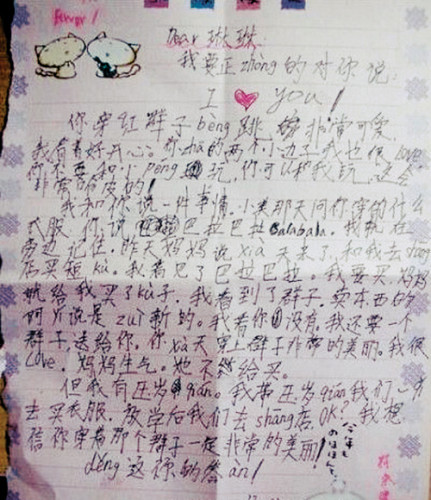 Forever!
Dear 琳琳:
我要正zhong的对你说:
I ❤ you!
你穿红群子bèng跳,非常可爱,
我看着好开心。你zhā的两个小边子我也很love
你不要和小péng玩,你可以和我玩,这会
非常的皮的!
我和你说一件事情。小美那天问你穿的什么
衣服,你说巴拉巴拉balabala。我就在
旁边记住,昨天妈妈说xià天来了,和我去shāng
店买短kù。我看见了巴拉巴拉。我要买,妈妈
就给我买了kù子,我看到了群子,卖本西的
阿yí说是zuì新的。我看你没有,我还要一个
群子,送给你,你xià天穿上群子非常的美丽。我很
love,妈妈生气。她不给买。
但我有压岁qián。我带压岁qián我们一方
去买衣服,放学后我们去shang店,OK?我想
信你穿着那个群子一定非常的美丽!
děng这你的答àn!